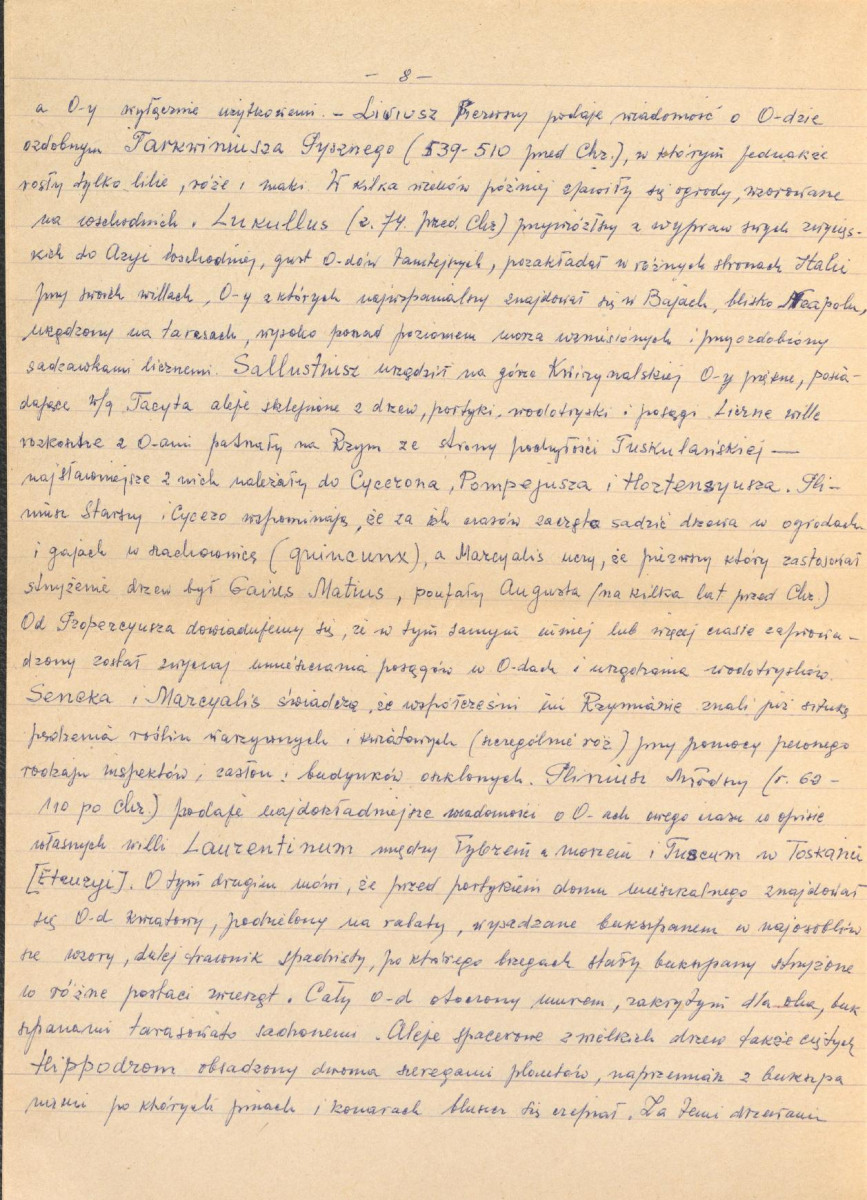 - 8 -
a O-y wyłącznie użytkowemi. - Liwiusz Pierwszy podaje wiadomość o O-dzie
ozdobnym Tarkwiniusza Pysznego (539-510 przed Chr.), w którym jednakże
rosły tylko lilie, róże i maki. W kilka wieków później zjawiły się ogrody, wzorowane
na wschodnich. Lukullus (r. 74 przed Chr) przywiózłszy z wypraw swych zwycięs-
kich do Azyi wschodniej, gust O-dów tamtejszych, pozakładał w różnych stronach Italii
przy swoich willach, O-y z których najwspanialszy znajdował się w Bajach, blisko Neapolu,
urządzony na tarasach, wysoko ponad poziomem morza wzniesionych i przyozdobiony
sadzawkami licznemi. Sallustiusz urządził na górze Kwirynalskiej O-y piękne, posia-
dające w/g Tacyta aleje sklepione z drzew, portyki, wodotryski i posągi. Liczne wille
rozkoszne z O-ami patrzały na Rzym ze strony pochyłości Tuskulańskiej —
najsławniejsze z nich należały do Cycerona, Pompejusza i Hortenzyusza. Pli-
niusz Starszy i Cycero wspominają, że za ich czasów zaczęto sadzić drzewa w ogrodach
i gajach w szachownicę (quincunx), a Marcyalis uczy, że pierwszy który zastosował
strzyżenie drzew był Gaius Matius, poufały Augusta (na kilka lat przed Chr.)
Od Propercyusza dowiadujemy się, że w tym samym mniej lub więcej czasie zaprowa-
dzony został zwyczaj umieszczania posągów w O-dach i urządzania wodotrysków.
Seneka i Marcyalis świadczą, że współcześni im Rzymianie znali już sztukę
pędzenia roślin warzywnych i kwiatowych (szczególnie róż) przy pomocy pewnego
rodzaju inspektów, zasłon i budynków oszklonych. Pliniusz Młodszy (r. 62-
110 po Chr.) podaje najdokładniejsze wiadomości o O-ach owego czasu w opisie
własnych willi Laurentinum między Tybrem a morzem i Tuscum w Toskanii
[Etruryi]. O tym drugim mówi, że przed portykiem domu mieszkalnego znajdował
się O-d kwiatowy, podzielony na rabaty, wysadzane bukszpanem w najosobliw
sze wzory, dalej trawnik spadzisty, po którego brzegach stały bukszpany strzyżone
w różne postaci zwierząt. Cały O-d otoczony murem, zakrytym dla oka, buk
szpanami tarasowato sadzonemi. Aleje spacerowe z wielkich drzew także ciętych
Hippodrom obsadzony dwoma szeregami platanów, naprzemian z bukszpa
nami po których pniach i konarach bluszcz się czepiał. Za temi drzewami